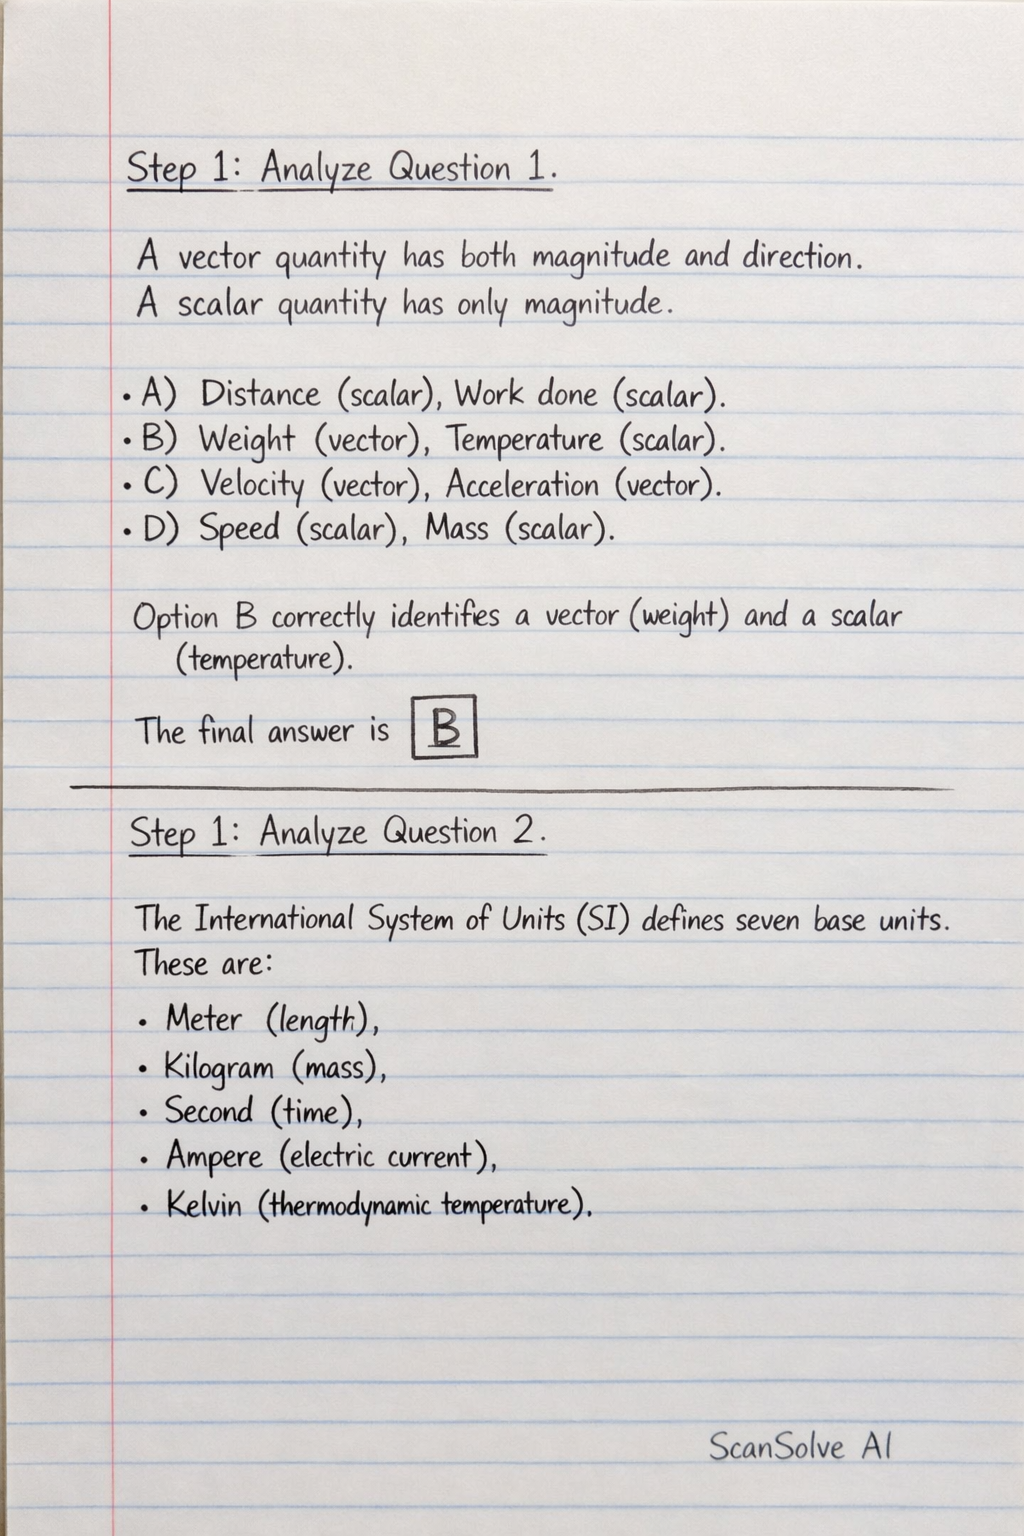 Step 1: Analyze Question 1.
A vector quantity has both magnitude and direction.
A scalar quantity has only magnitude.
• A) Distance (scalar), Work done (scalar).
• B) Weight (vector), Temperature (scalar).
• C) Velocity (vector), Acceleration (vector).
• D) Speed (scalar), Mass (scalar).
Option B correctly identifies a vector (weight) and a scalar
(temperature).
The final answer is B
Step 1: Analyze Question 2.
The International System of Units (SI) defines seven base units.
These are:
• Meter (length),
• Kilogram (mass),
• Second (time),
• Ampere (electric current),
• Kelvin (thermodynamic temperature).
ScanSolve AI